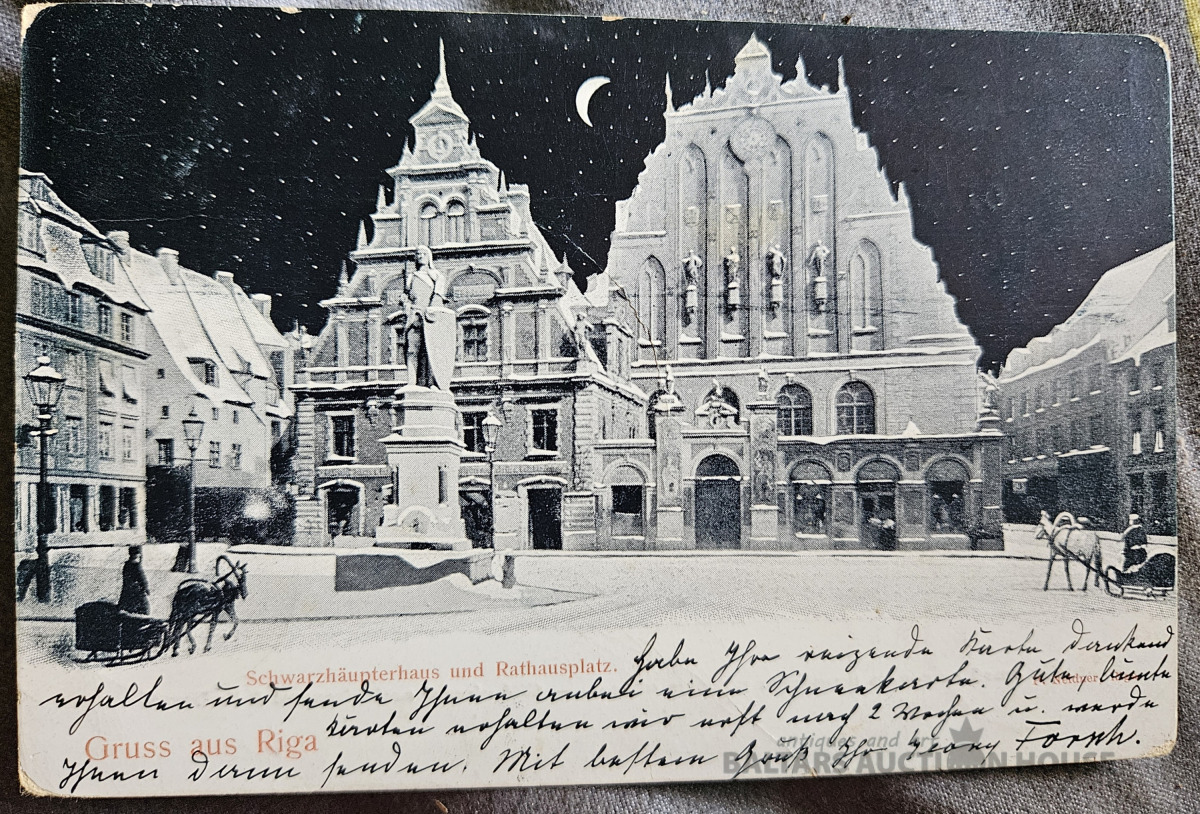 Schwarzhäupterhaus und Rathausplatz.
Habe Ihre reizende Karte dankend
erhalten und sende Ihnen anbei eine Schneekarte. Gute bunte
Karten erhalten wir erst nach 2 Wochen u. werde
Gruss aus Riga
Ihnen dann senden. Mit bestem Gruß Ihr Georg
antiques and art
BALTARS AUCTION HOUSE